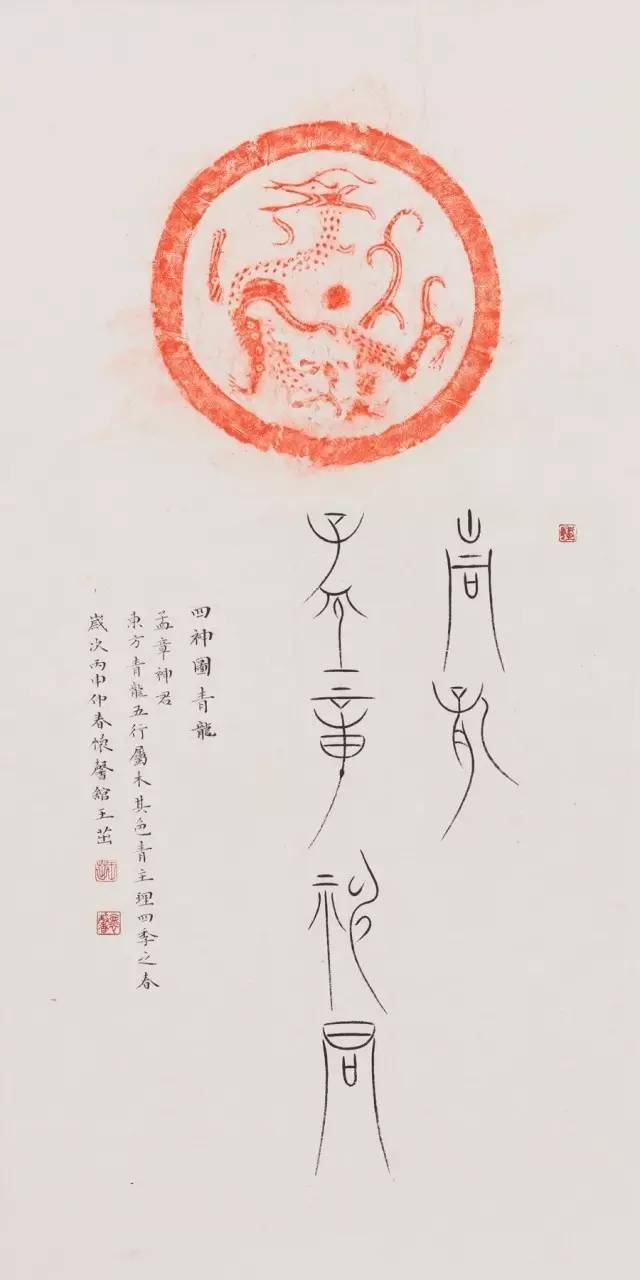 孟章神君
四神圖青龍
孟章神君
東方青龍五行屬木其色青主理四季之春
歲次丙申仲春懷馨館王茁